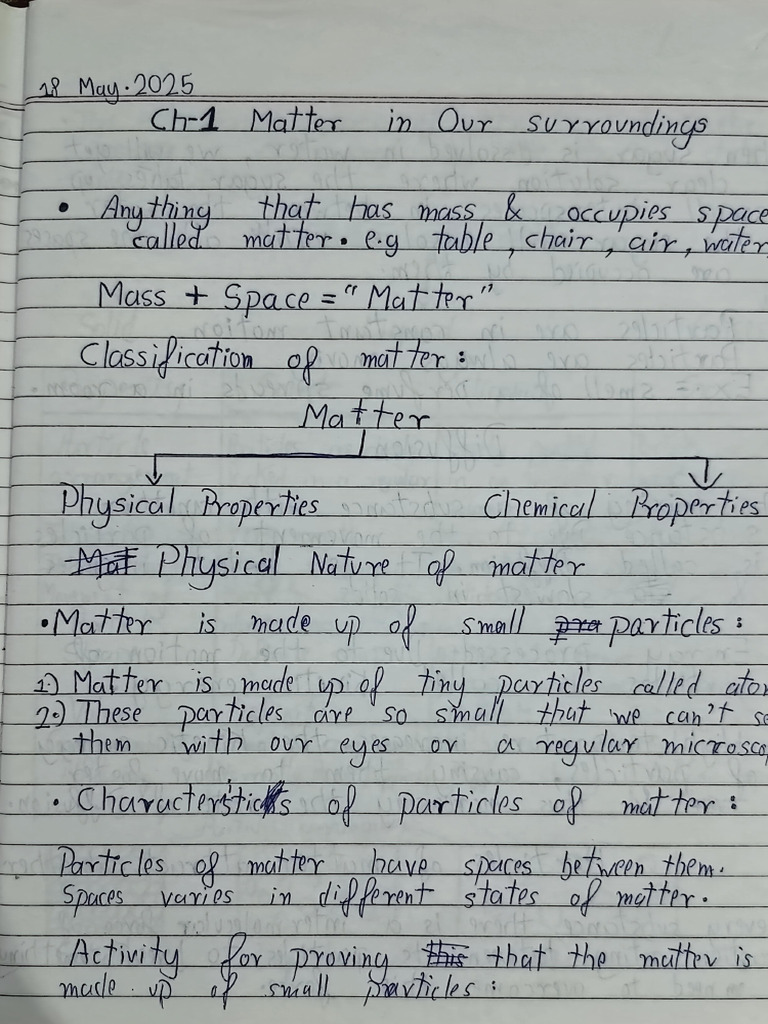 18 May. 2025
Ch-1 Matter in Our surroundings
• Anything that has mass & occupies space
called matter. e.g table, chair, air, water,
Mass + Space = "Matter"
Classification of matter:
Matter
Physical Properties Chemical Properties
Physical Nature of matter
• Matter is made up of small particles:
1.) Matter is made up of tiny particles called
2.) These particles are so small that we can't
them with our eyes or a regular
• Characteristics of particles of matter:
Particles of matter have spaces between them.
Spaces varies in different states of matter.
Activity for proving that the matter is
made up of small particles: